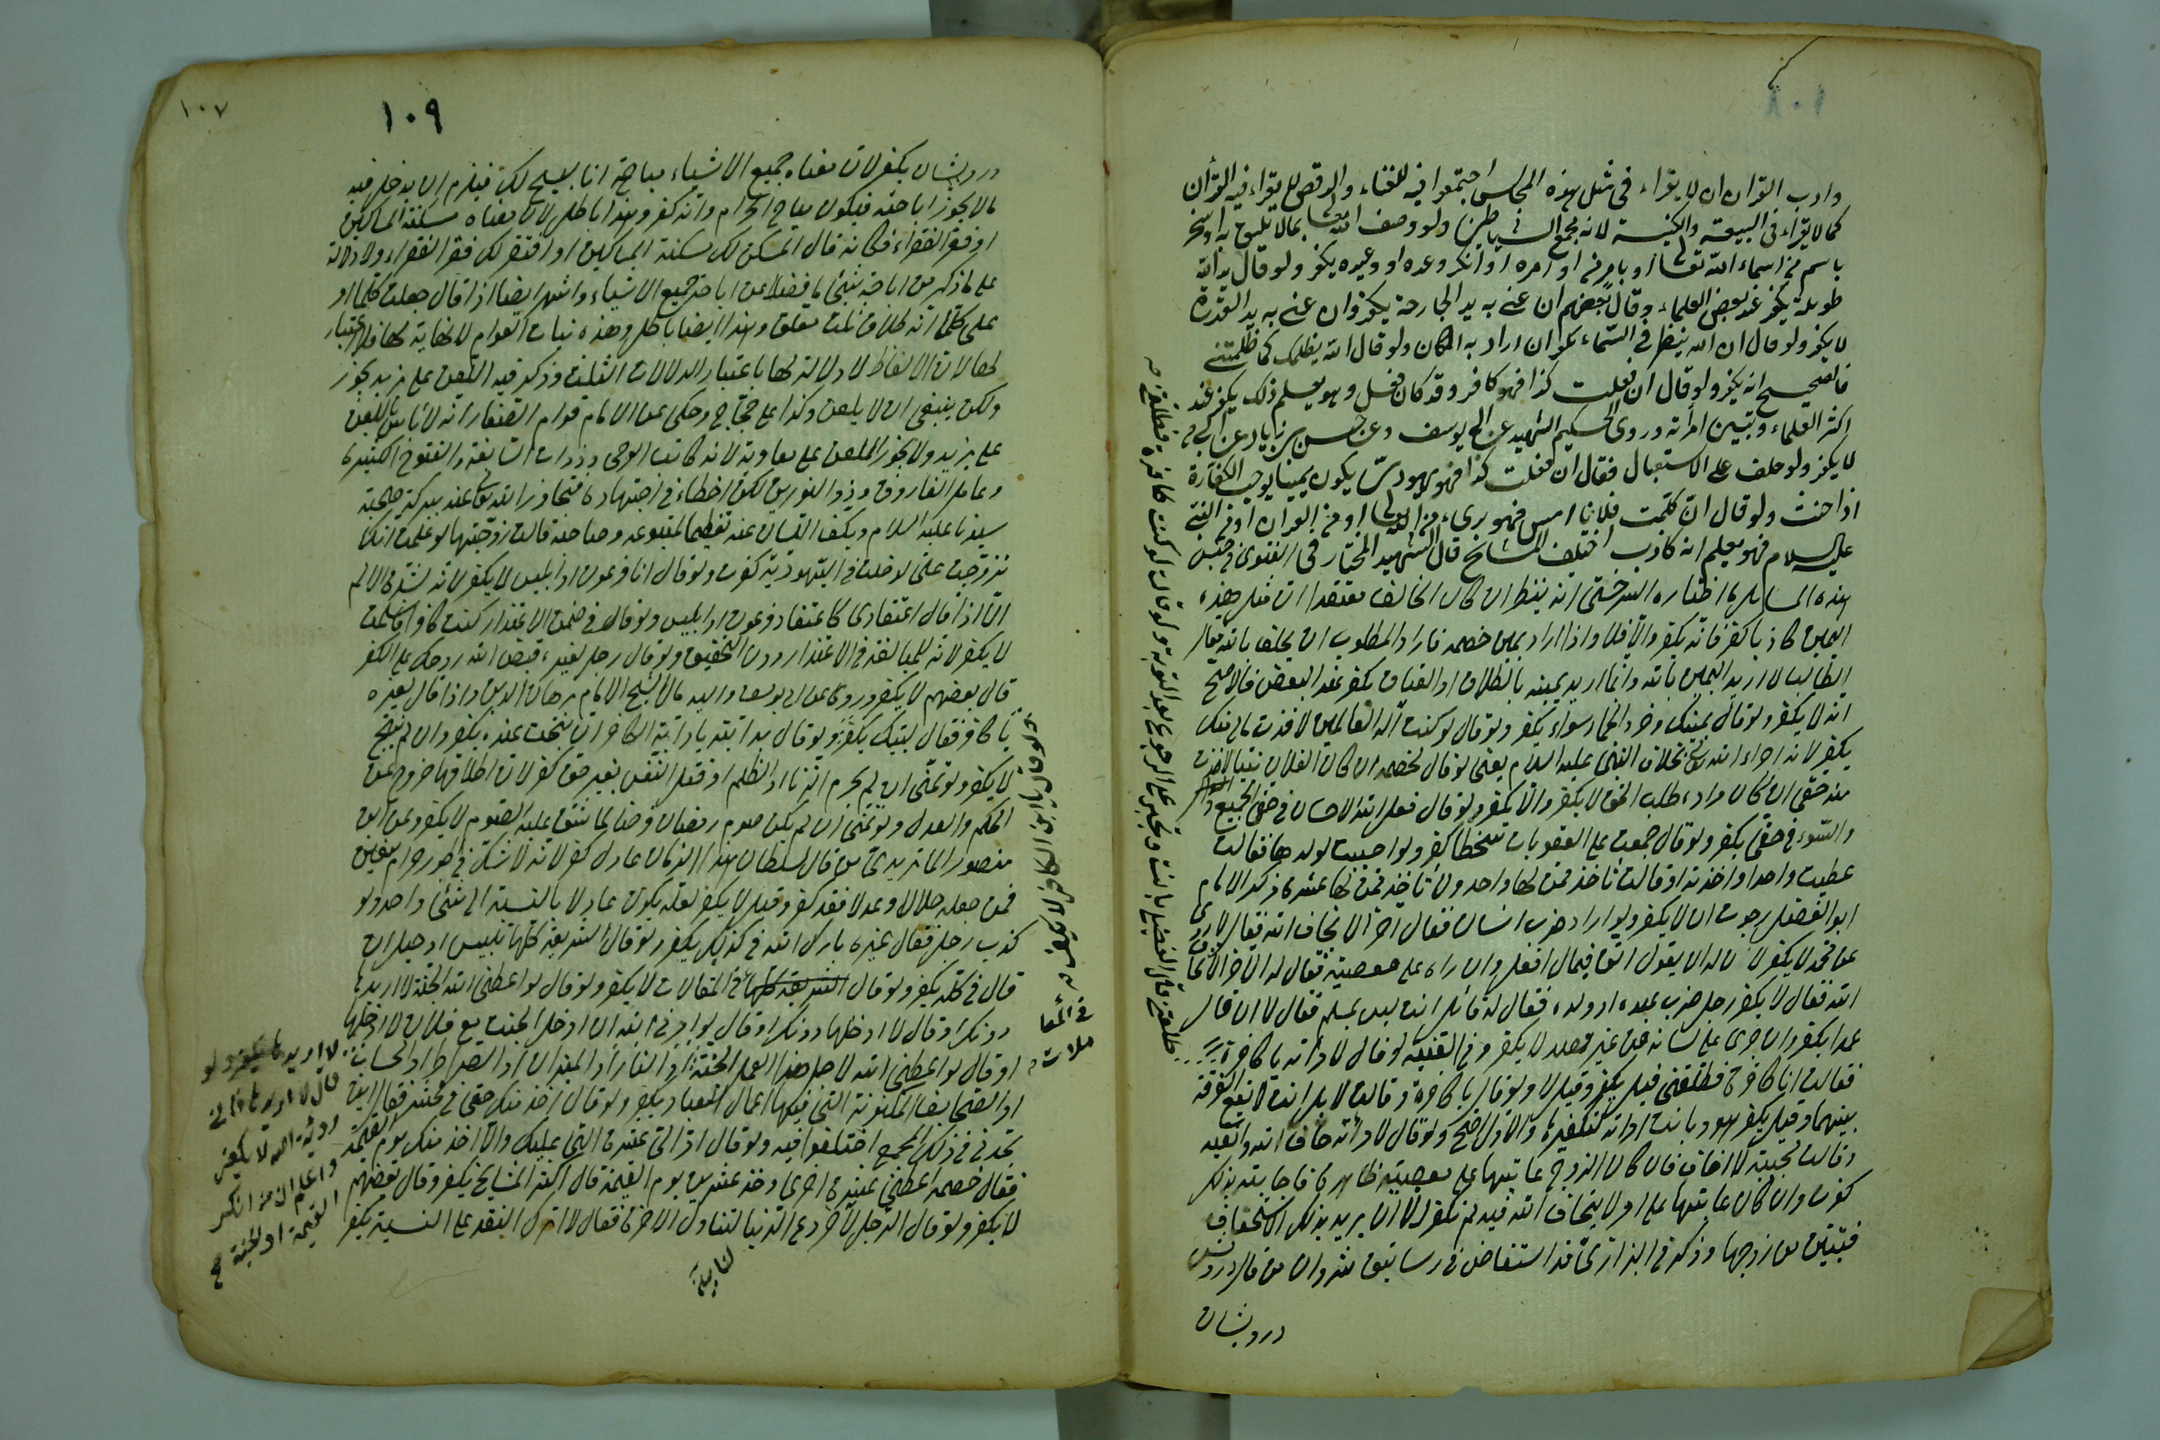 ١٠٨
وادب القران ان لا يقراء فى مثل هذه المجالس اجتمعوا فيه للغناء والرقص لا يقراء فيه القرأن
كما لا يقراء فى البيعة والكنيسة لانه مجمع الشياطين ولو وصف الله تعالى بما لا يليق به او سخر
باسم من اسماء الله تعالى او بامر من اوامره او انكر وعده او وعيده يكفر ولو قال يد الله
طويلة يكفر عند بعض العلماء وقال بعضهم ان عنى به يد الجارحة يكفر وان عنى به يد القدرة
لا يكفر ولو قال ان الله ينظر فى السماء يكفر ان اراد به المكان ولو قال الله يظلمك كما ظلمتنى
فالصحيح انه يكفر ولو قال ان فعلت كذا فهو كافر وقد كان فعل وهو يعلم ذلك يكفر عند
اكثر العلماء وتبين امرأته وروى الحكيم الشهيد عن ابى يوسف وعن حسن بن زياد عن
لا يكفر ولو حلف على الاستقبال فقال ان فعلت كذا فهو يهودى يكون يمينا يوجب الكفارة
اذا حنث ولو قال ان كلمت فلانا امس فهو برىء من الله تعالى او من القران او من النبى
عليه السلام فهو يعلم انه كاذب اختلف المشايخ قال الشهيد المختار فى الفتوى فى جنس
هذه المسايل ما اختاره السرخسى انه ينظر ان كان الحالف معتقدا ان مثل هذه
اليمين كاذبا كفر فانه يكفر والا فلا واذا اراد يمين خصمه فاراد المطلوب ان يحلف بالله فقال
الطالب لا اريد اليمين بالله وانما اريد يمينه بالطلاق او العتاق يكفر عند البعض فالاصح
انه لا يكفر ولو قال يمينك وخرء الحمار سواء يكفر ولو قال لو كنت اله العالمين لاخذت مالى منك
يكفر لانه اجراء الله تعالى بخلاف النبى عليه السلام يعنى لو قال لخصمه ان كان الفلان نبيا لاخذت
منه حقى ان كان مراده طلب الحق لا يكفر والا يكفر ولو قال فعل الله الاحسان فى حق الجميع
والسوء فى حقى يكفر ولو قال جمعت على العقوبات سخطا كفر
عطيت واحدا واخذت او قالت تأخذ ممن لها واحد ولا تأخذ ممن لها عشرة ذكر الامام
ابو الفضل رجوت ان لا يكفر ولو اراد ضرب انسان فقال اخر الا تخاف الله فقال لا روى
عن محمد لا يكفر لان له ان يقول التقا فيما افعل وان راه على معصية فقال له الاخر الا تخاف
الله فقال لا يكفر رجل ضرب عبده او ولده فقال له قائل انت لست بمسلم فقال لا ان قال
عمدا يكفر وان جرى على لسانه من غير قصد لا يكفر وفى القنية لو قال لامرأته يا كافرة
فقالت انا كافرة فطلقنى قيل يكفر وقيل لا ولو قال يا كافرة وقالت لا بل انت لا تقع الفرقة
بينهما وقيل يكفر والاول اصح ولو قال لامرأته خاف الله واتقيه
وقالت مجيبة لا اخاف فان كان الزوج عاتبها على معصية ظاهرة فاجابته بذلك
كفرت وان كان عاتبها على امر لا يخاف الله فيه لم تكفر الا ان يريد بذلك الاستخفاف
فتبين من زوجها وذكر فى البزازى قد استفاض فى رساتيق شروان من قال درويش
درويشان
١٠٩
١٠٧
درويشان يكفر لان معناه جميع الاشياء مباحة انا ابيح لك فيلزم ان يدخل فيه
ما لا يجوز اباحته فيكون مباح الحرام وانه كفر وهذا باطل لان معناه مسكنة المساكين
او فقر الفقراء فكانه قال اتمسكن لك مسكنة المساكين او افتقر لك فقر الفقراء ولا دلالة
على ما ذكر من اباحة شئ ما فضلا عن اباحة جميع الاشياء واشهر ايضا اذا قال جعلت كلما او
على كلما انه طلاق ثلث معلق وهذا ايضا باطل وهذه نيات العوام لا نهاية لها فلا اعتبار
لها لان الالفاظ لا دلالة لها باعتبار الدلالات الثلث وذكر فيه اللعن على يزيد يجوز
ولكن ينبغى ان لا يلعن وكذا على حجاج وحكى عن الامام قوام الصفار انه لا بأس باللعن
على يزيد ولا يجوز اللعن على معاوية لانه كاتب الوحى وذو السابقة والفتوح الكثيرة
وعامل الفاروق وذو النورين لكن اخطاء فى اجتهاده فتجاوز الله تعالى عنه ببركة صحبة
سيدنا عليه السلام ويكف اللسان عنه تعظيما لمتبوعه وصاحبه قالت زوجتها لو علمت انك
تزوجت على لدخلت فى اليهودية كفرت ولو قال انا فرعون او ابليس لا يكفر
الا اذا قال اعتقادى كاعتقاد فرعون او ابليس ولو قال فى ضمن الاعتذار كنت كافرا فاسلمت
لا يكفر لانه للمبالغة فى الاعتذار دون التحقيق ولو قال رجل لغيره قبض الله روحك على الكفر
قال بعضهم لا يكفر وروى عن ابى يوسف واليه مال الشيخ الامام برهان الدين واذا قال لغيره
يا كافر فقال لبيك يكفر ولو قال بدابته يا دابة الكافر ان نتجت عنده يكفر وان لم ينتج
لا يكفر ولو تمنى ان لم يحرم الزنا او الظلم او قتل النفس بغير حق كفر لان اطلاقها خروج عن
الحكم والعدل ولو تمنى ان لم يكن صوم رمضان فرضا لما شق عليه الصوم لا يكفر وعن ابى
منصور الماتريدى من قال لسلطان هذا الزمان عادل كفر لانه لا شك فى جوره حرام بيقين
فمن جعله حلالا وعدلا فقد كفر وقيل لا يكفر لعله يكون عادلا بالنسبة الى شئ واحد ولو
كذب رجل فقال غيره بارك الله فى كذبك يكفر ولو قال الشريعة كلها تلبيس او حيل ان
قال فى كله يكفر ولو قال فى المعاملات لا يكفر ولو قال لو اعطنى الله الجنة لا اريدها
دونك او قال لا ادخلها دونك او قال لو امرنى الله ان ادخل الجنة مع فلان لا ادخلها
او قال لو اعطنى الله لاجل هذا العمل الجنة او النار او الميزان او الصراط او الحساب
او الصحايف المكتوبة التى فيها اعمال العباد يكفر ولو قال اخذ منك حقى فى محشر فقال اين
تجدنى فى ذلك المجمع اختلفوا فيه ولو قال اد الى عشرة التى عليك والا اخذ منك يوم القيمة
فقال خصمه اعطنى عشرة اخرى وخذ عشرين يوم القيمة قال اكثر المشايخ يكفر وقال بعضهم
لا يكفر ولو قال الرجل لاخر دع الدنيا لتناول الاخرة فقال لا اترك النقد على النسية يكفر
فى المعا
ملات
لا اريدها يكفر ولو
قال لا اريدها
رؤية الله لا يكفر
واعلم ان من انكر
القيمة او الجنة